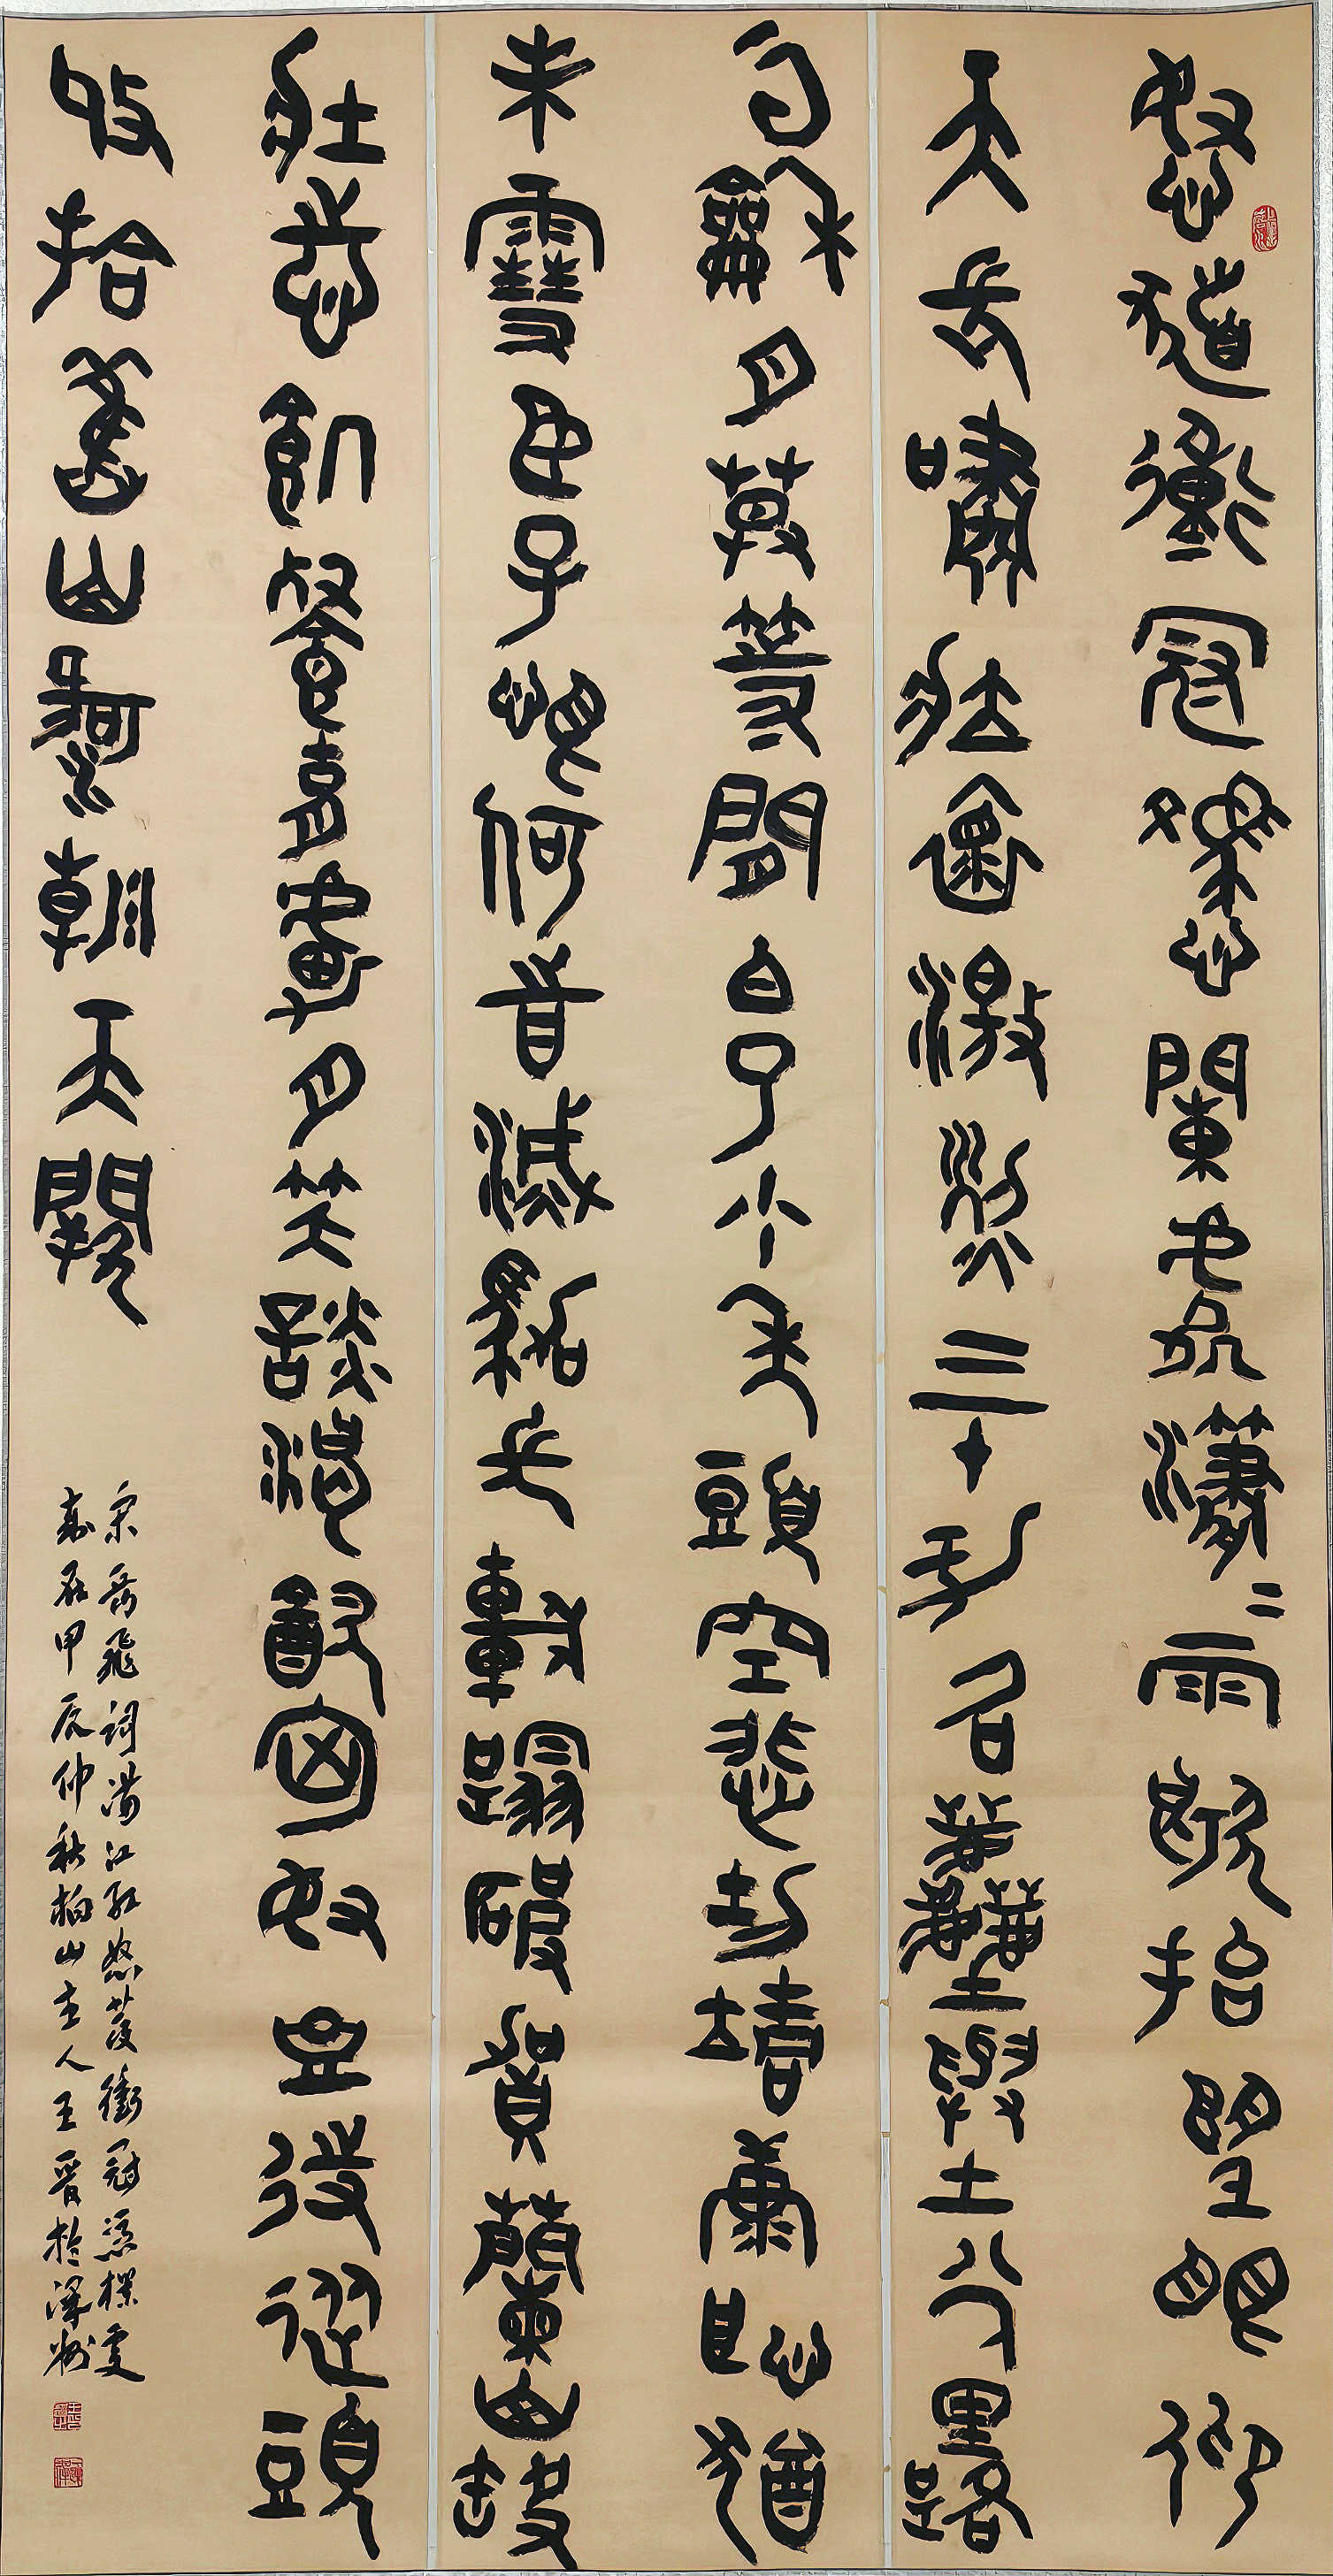 怒髮衝冠憑闌處瀟瀟雨歇抬望眼仰
天長嘯壯懷激烈三十功名塵與土八千里路
雲和月莫等閒白了少年頭空悲切靖康恥猶
未雪臣子恨何時滅駕長車踏破賀蘭山缺
壯志飢餐胡虜肉笑談渴飲匈奴血待從頭
收拾舊山河朝天闕
宋岳飛詞滿江紅怒發衝冠憑欄處
歲在甲辰仲秋柏山主人王晉於